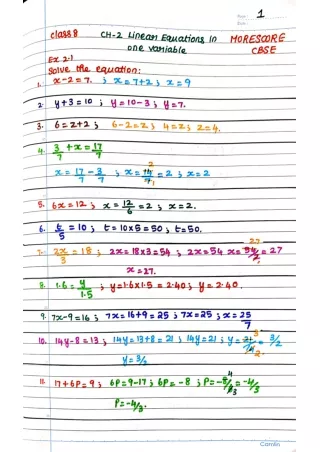 Page: 1
Date:
Class 8 CH-2 Linear Equations in MORESCORE
one variable CBSE
Ex 2.1
Solve the equation:
1. x-2=7. ; x=7+2 ; x=9
2. y+3=10 ; y=10-3 ; y=7.
3. 6=z+2 ; 6-2=z ; 4=z ; z=4.
4. 3/7 + x = 17/7
x = 17-3/7 ; x = 14/7 2 1 = 2 ; x=2
5. 6x=12 ; x=12/6 = 2 ; x=2.
6. t/5 = 10 ; t=10x5=50 ; t=50.
7. 2x/3 = 18 ; 2x=18x3=54 ; 2x=54 x=54/2 27 = 27
x=27.
8. 1.6 = y/1.5 ; y=1.6x1.5 = 2.40 ; y=2.40.
9. 7x-9=16 ; 7x=16+9=25 ; 7x=25 ; x=25/7
10. 14y-8=13 ; 14y=13+8=21 ; 14y=21 ; y=21/14 3 2 = 3/2
y=3/2
11. 17+6P=9 ; 6P=9-17 ; 6P=-8 ; P=-8/6 4 3 = -4/3
P=-4/3
Camlin